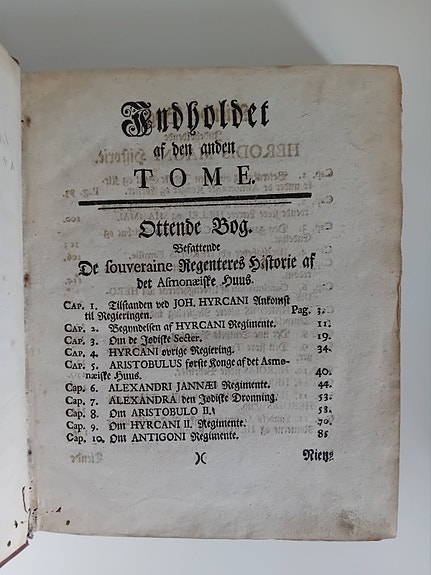 Indholdet
af den anden
TOME.
Ottende Bog.
Befattende
De souveraine Regenteres Historie af
det Asmonæiske Huus.
CAP. 1. Tilstanden ved JOH. HYRCANI Ankomst
til Regieringen. Pag. 3.
Cap. 2. Begyndelsen af HYRCANI Regimente. 11.
Cap. 3. Om de Jødiske Secter. 19.
Cap. 4. HYRCANI øvrige Regiering. 34.
Cap. 5. ARISTOBULUS første Konge af det Asmo-
næiske Huus. 40.
Cap. 6. ALEXANDRI JANNÆI Regimente. 44.
Cap. 7. ALEXANDRA den Jødiske Dronning. 53.
Cap. 8. Om ARISTOBULO II. 58.
Cap. 9. Om HYRCANI II. Regimente. 70.
Cap. 10. Om ANTIGONI Regimente. 85
)( Niende